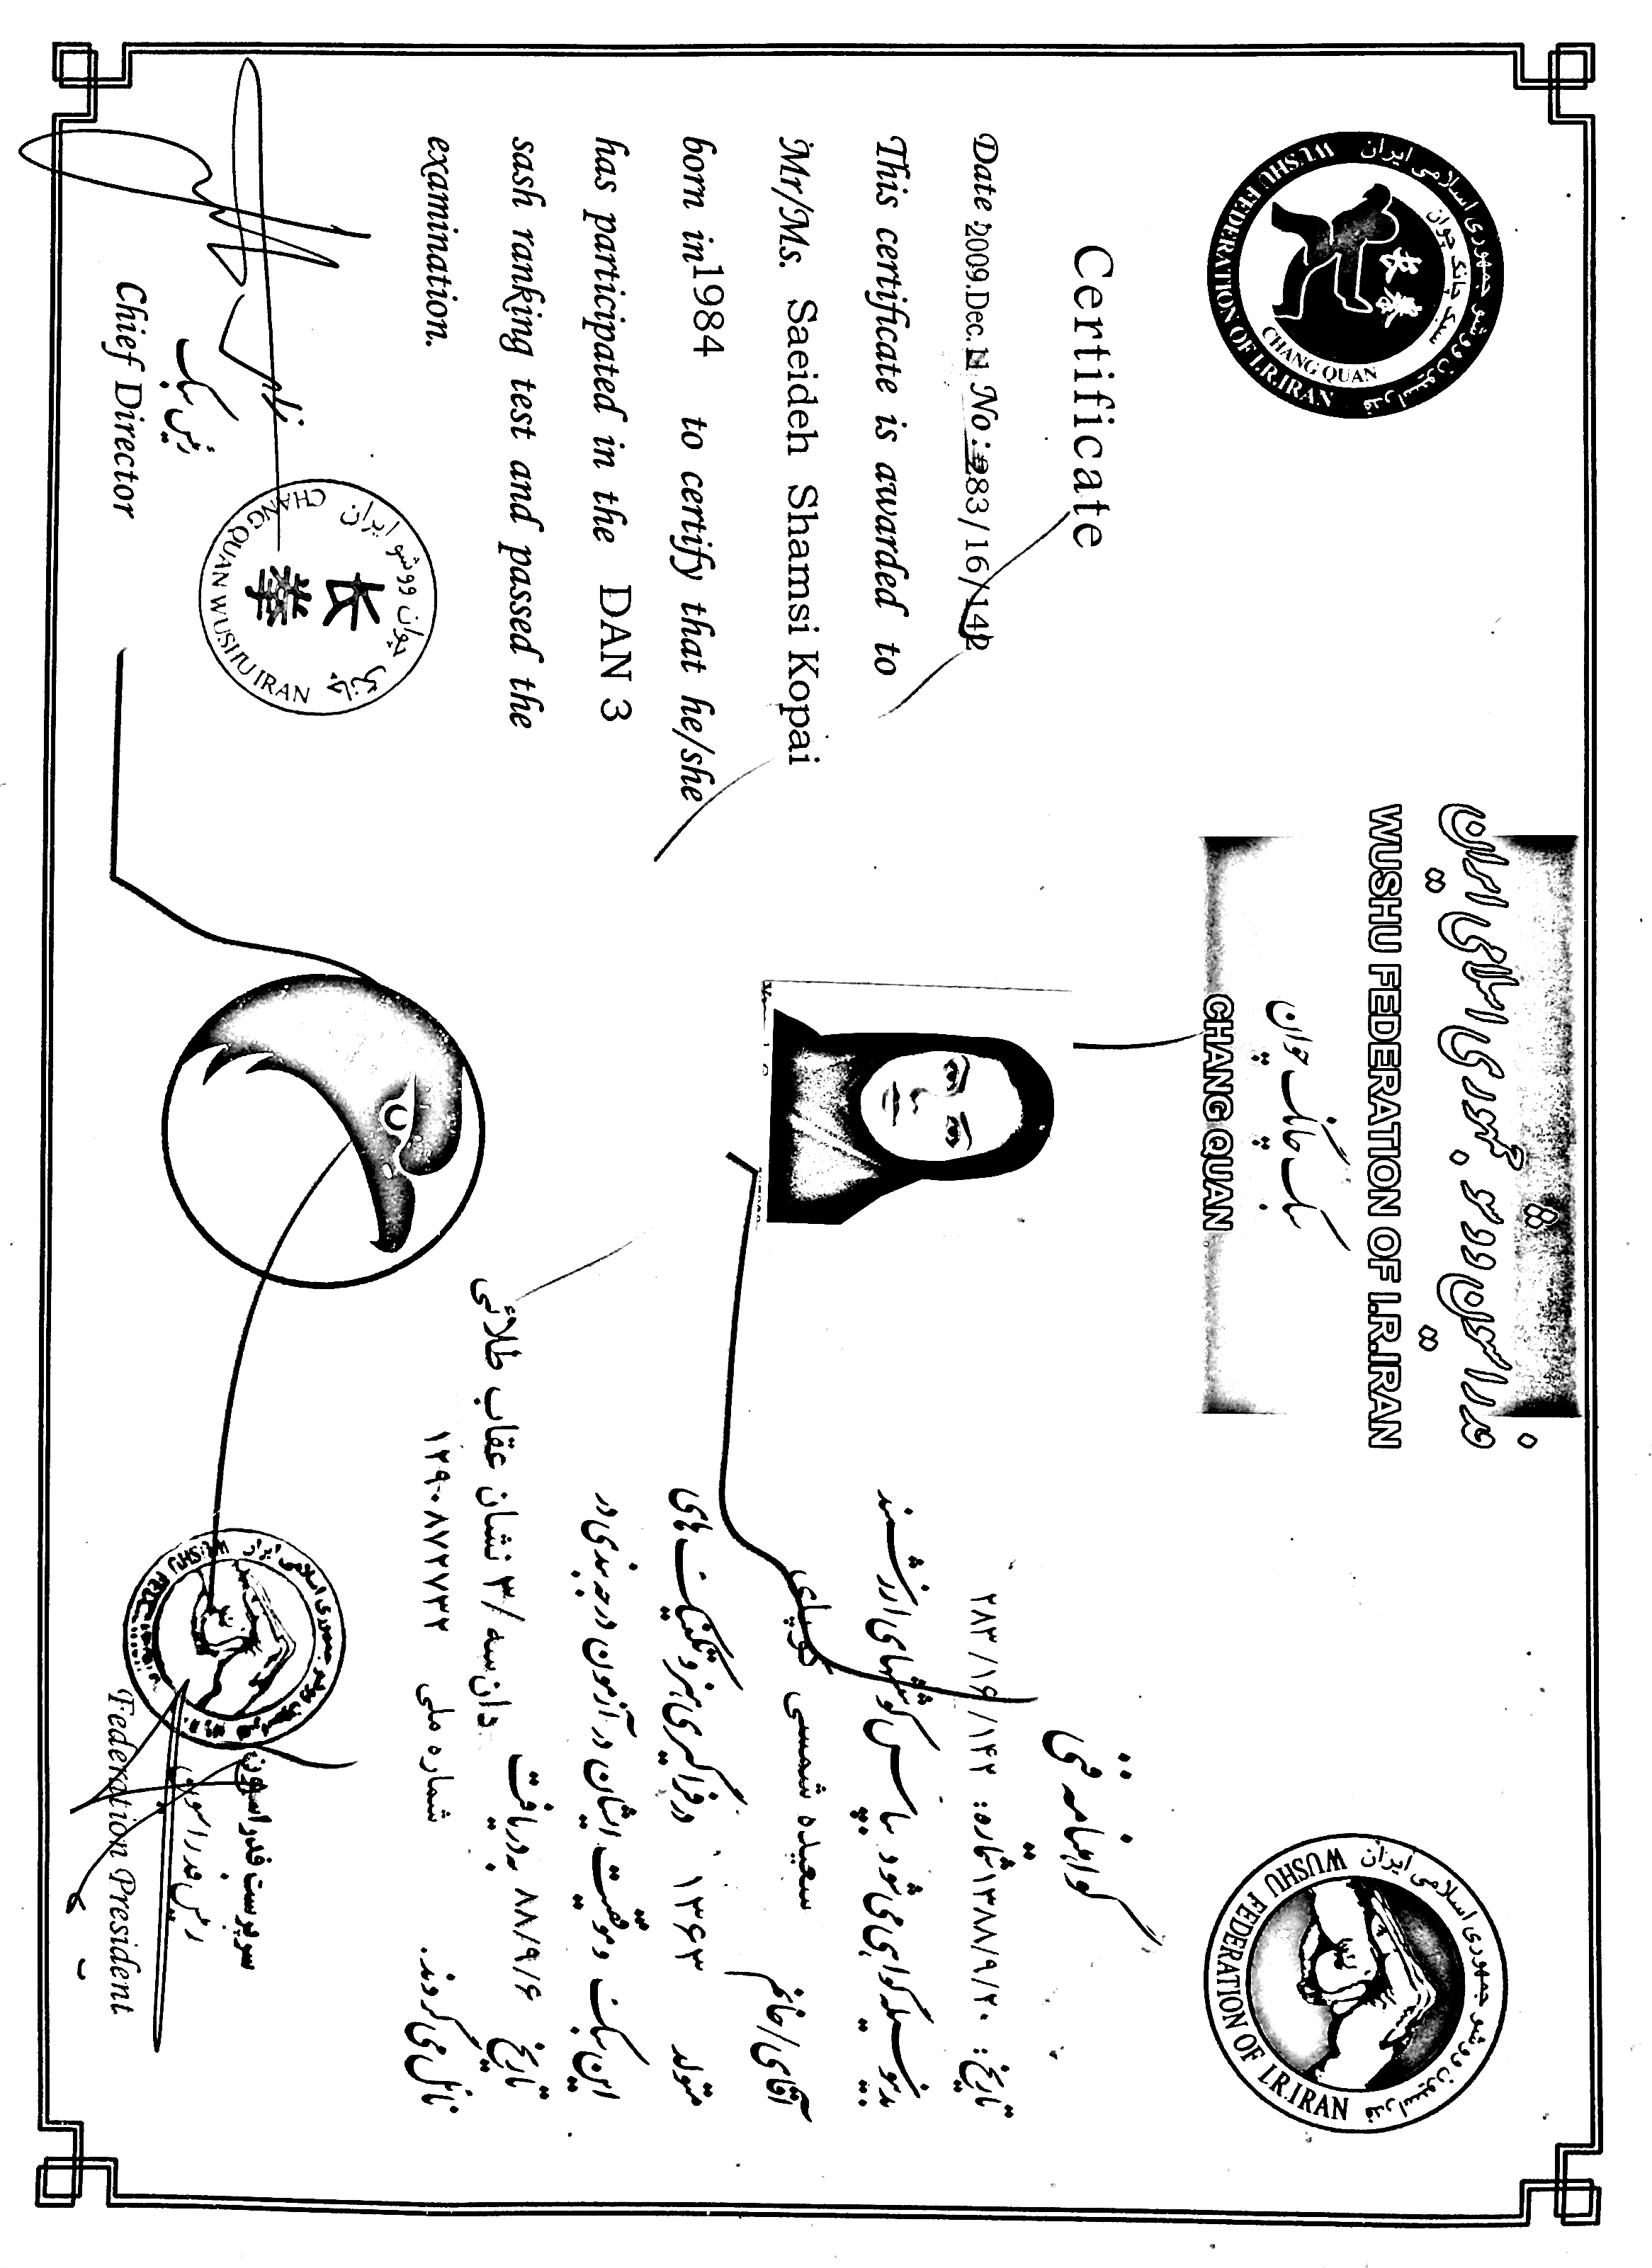 فدراسیون ووشو جمهوری اسلامی ایران
WUSHU FEDERATION OF I.R.IRAN
سبک چانگ چوان
CHANG QUAN
فدراسیون ووشو جمهوری اسلامی ایران
سبک چانگ چوان
長拳
CHANG QUAN
WUSHU FEDERATION OF I.R.IRAN
Certificate
Date 2009.Dec.11 No: 283/16/142
This certificate is awarded to
Mr/Ms. Saeideh Shamsi Kopai
born in 1984 to certify that he/she
has participated in the DAN 3
sash ranking test and passed the
examination.
رئیس سبک
Chief Director
چانگ چوان ووشو ایران
长拳
CHANG QUAN WUSHU IRAN
فدراسیون ووشو جمهوری اسلامی ایران
WUSHU FEDERATION OF I.R.IRAN
گواهینامه فنی
تاریخ: ۱۳۸۸/۹/۲۰ شماره: ۲۸۳/۱۶/۱۴۲
بدینوسیله گواهی می شود با سپاس از کوششهای ارزشمند
آقای/خانم سعیده شمسی کوپایی
متولد ۱۳۶۳ در فراگیری هنر و تکنیک های
این سبک و موفقیت ایشان در آزمون درجه بندی در
تاریخ ۸۸/۹/۶ به دریافت دان سه/۳ نشان عقاب طلائی
نائل می گردند. شماره ملی ۱۲۹۰۸۷۲۷۳۲
سرپرست فدراسیون
رئیس فدراسیون
Federation President
فدراسیون ووشو جمهوری اسلامی ایران
WUSHU